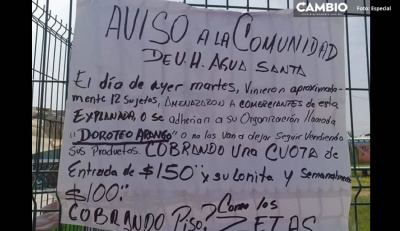 CAMBIO
Foto: Especial
AVISO A LA COMUNIDAD
DE U.H. AGUA SANTA
El día de ayer martes, Vinieron aproximada-
mente 12 sujetos, AMENAZARON A COMERCIANTES de esta
EXPLANADA, o se adherían a su Organización llamada
"DOROTEO ARANGO" o no los van a dejar Seguir Vendiendo
Sus Productos. COBRANDO UNA CUOTA de
Entrada de $150.. x su Lonita y Semanalmente
$100..
COBRANDO Piso? Como los
ZETAS